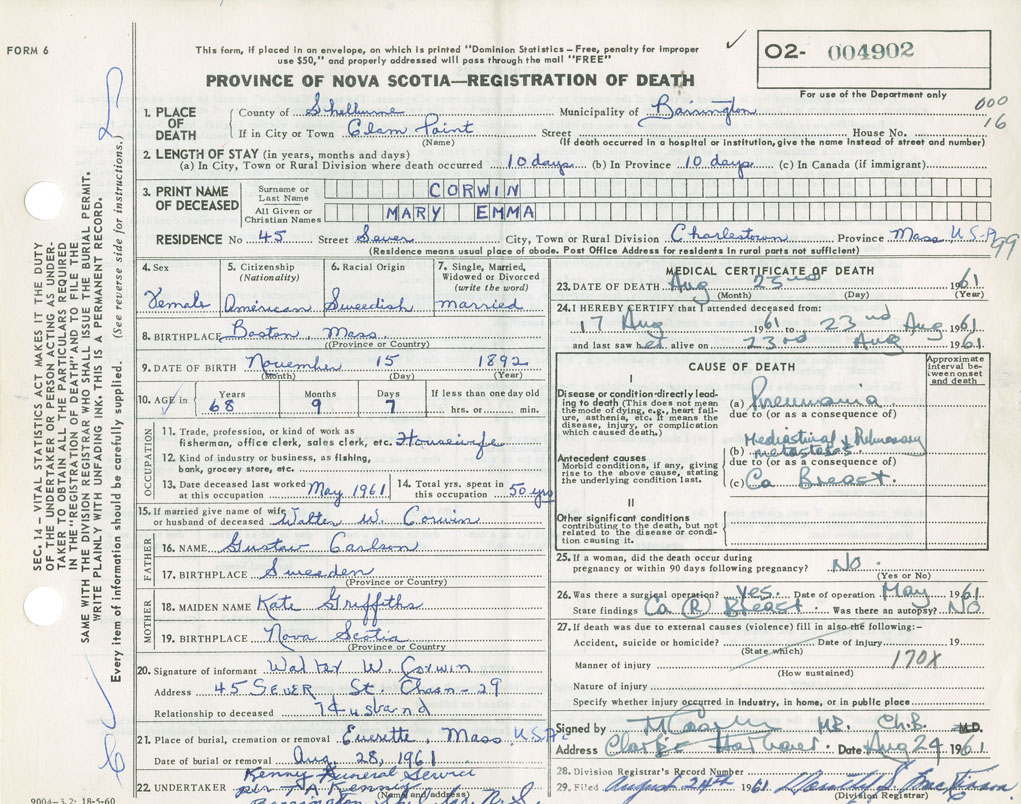 FORM 6
This form, if placed in an envelope, on which is printed "Dominion Statistics – Free, penalty for improper
use $50," and properly addressed will pass through the mail "FREE"
PROVINCE OF NOVA SCOTIA—REGISTRATION OF DEATH
O2- 004902
For use of the Department only
000
16
1. PLACE OF DEATH
County of Shelburne Municipality of Barrington
If in City or Town Clam Point Street House No.
(Name) (If death occurred in a hospital or institution, give the name instead of street and number)
2. LENGTH OF STAY (in years, months and days)
(a) In City, Town or Rural Division where death occurred 10 days (b) In Province 10 days (c) In Canada (if immigrant)
3. PRINT NAME OF DECEASED
Surname or Last Name CORWIN
All Given or Christian Names MARY EMMA
RESIDENCE No 45 Street Sever City, Town or Rural Division Charlestown Province Mass U.S.A.
99
(Residence means usual place of abode. Post Office Address for residents in rural parts not sufficient)
4. Sex
Female
5. Citizenship (Nationality)
American
6. Racial Origin
Sweedish
7. Single, Married, Widowed or Divorced (write the word)
married
8. BIRTHPLACE Boston, Mass.
(Province or Country)
9. DATE OF BIRTH November 15 1892
(Month) (Day) (Year)
10. AGE in Years Months Days If less than one day old
68 9 7 hrs. or min.
OCCUPATION
11. Trade, profession, or kind of work as
fisherman, office clerk, sales clerk, etc. Housewife
12. Kind of industry or business, as fishing,
bank, grocery store, etc.
13. Date deceased last worked at this occupation May 1961
14. Total yrs. spent in this occupation 50 yrs
15. If married give name of wife
or husband of deceased Walter W. Corwin
FATHER
16. NAME Gustav Carlson
17. BIRTHPLACE Sweeden
(Province or Country)
MOTHER
18. MAIDEN NAME Kate Griffiths
19. BIRTHPLACE Nova Scotia
(Province or Country)
20. Signature of informant Walter W. Corwin
Address 45 SEVER St. Chasn-29
Relationship to deceased Husband
21. Place of burial, cremation or removal Everette, Mass. U.S.A.
Date of burial or removal Aug. 28, 1961
22. UNDERTAKER Kenny Funeral Service
per A Kenny
(Name and address)
Barrington
N.S.
9004-3.2: 18-5-60
MEDICAL CERTIFICATE OF DEATH
23. DATE OF DEATH Aug 23rd 1961
(Month) (Day) (Year)
24. I HEREBY CERTIFY that I attended deceased from:
17 Aug 1961 to 23rd Aug 1961
and last saw her alive on 23rd Aug 1961
CAUSE OF DEATH
Approximate interval between onset and death
I
Disease or condition directly leading to death (This does not mean the mode of dying, e.g., heart failure, asthenia, etc. It means the disease, injury, or complication which caused death.)
(a) Pneumonia
due to (or as a consequence of)
Antecedent causes
Morbid conditions, if any, giving rise to the above cause, stating the underlying condition last.
(b) Mediastinal & Pulmonary metastases
due to (or as a consequence of)
(c) Ca Breast.
II
Other significant conditions
contributing to the death, but not related to the disease or condition causing it.
25. If a woman, did the death occur during
pregnancy or within 90 days following pregnancy? No.
(Yes or No)
26. Was there a surgical operation? Yes. Date of operation May 1961
State findings Ca (R) Breast Was there an autopsy? No
27. If death was due to external causes (violence) fill in also the following:-
Accident, suicide or homicide? Date of injury 19
(State which)
Manner of injury 170X
(How sustained)
Nature of injury
Specify whether injury occurred in industry, in home, or in public place
Signed by MB. Ch.B. M.D.
Address Clark's Harbour Date Aug 24 1961
28. Division Registrar's Record Number
29. Filed August 24th 1961 Dorothy
(Division Registrar)
SEC. 14 – VITAL STATISTICS ACT MAKES IT THE DUTY
OF THE UNDERTAKER OR PERSON ACTING AS UNDER-
TAKER TO OBTAIN ALL THE PARTICULARS REQUIRED
IN THE "REGISTRATION OF DEATH" AND TO FILE THE
SAME WITH THE DIVISION REGISTRAR WHO SHALL ISSUE THE BURIAL PERMIT.
WRITE PLAINLY WITH UNFADING INK. THIS IS A PERMANENT RECORD.
Every item of information should be carefully supplied. (See reverse side for instructions.)